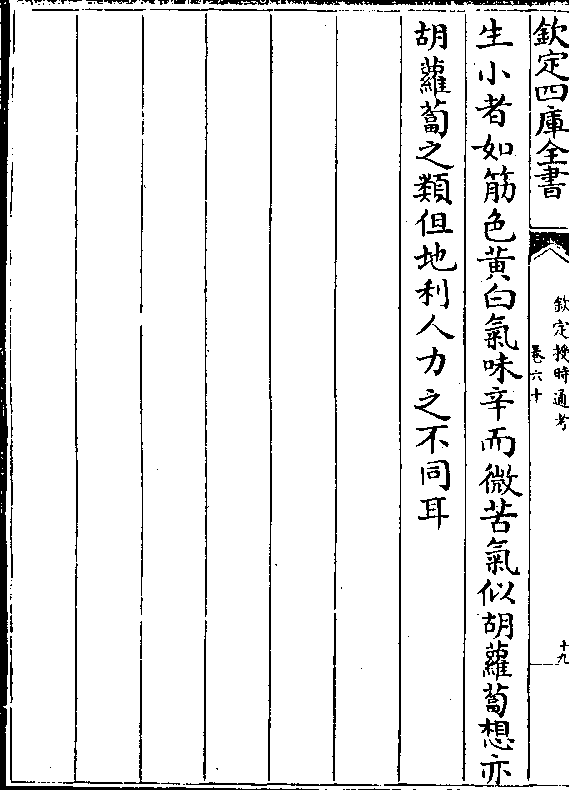 欽定四庫全書
欽定授時通考
卷六十
十九
生小者如筋色黃白氣味辛而微苦氣似胡蘿蔔想亦
胡蘿蔔之類但地利人力之不同耳